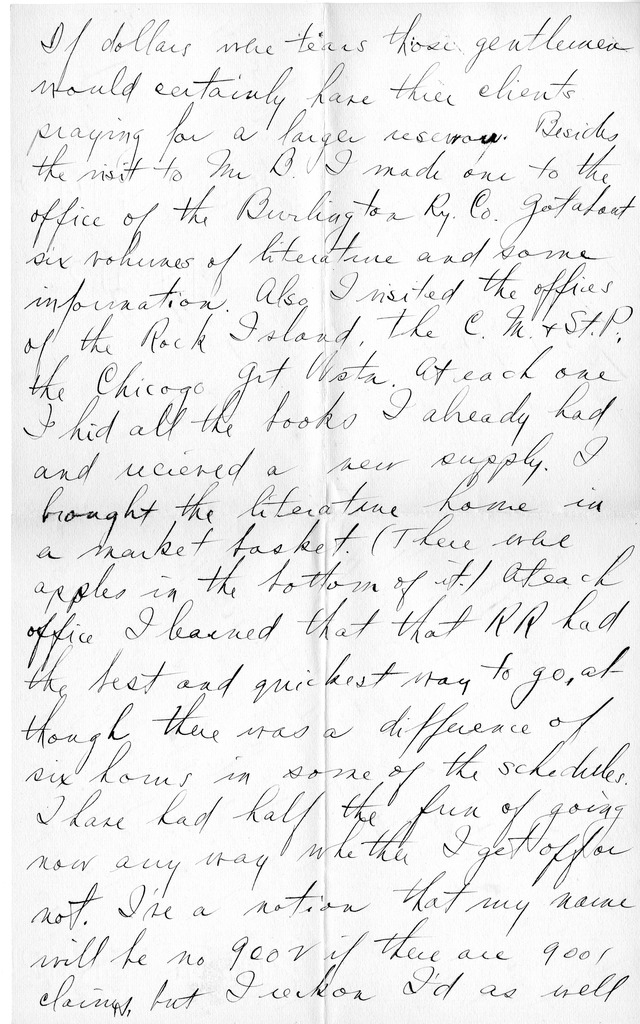 If dollars were tears those gentlemen
would certainly have thier clients
praying for a larger reservoy. Besides
the visit to Mr B. I made one to the
office of the Burlington Ry. Co. Got about
six volumes of literature and some
information. Also I visited the offices
of the Rock Island, the C. M. & St. P.
the Chicago Grt Wstn. At each one
I hid all the books I already had
and recieved a new supply. I
brought the literature home in
a market basket. (There were
apples in the bottom of it.) At each
office I learned that that RR had
the best and quickest way to go, al-
though there was a difference of
six hours in some of the schedules.
I have had half the fun of going
now any way whether I get off or
not. I've a notion that my name
will be no 9002 if there are 9001
claims, but I reckon I'd as well